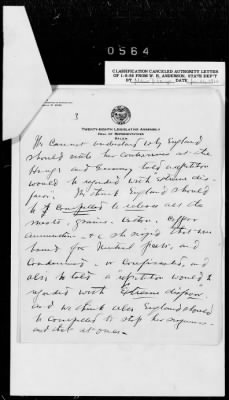 0564
CLASSIFICATION CANCELED AUTHORITY LETTER
OF 1-8-58 FROM W. H. ANDERSON, STATE DEP'T
BY DATE
3
TWENTY-EIGHTH LEGISLATIVE ASSEMBLY
HALL OF REPRESENTATIVES
SALEM
We Cannot understand why England
should
and Germany told a repetition
would be regarded with extreme dis-
favor. We think England should
be compelled to release all the
meats, grains, cotton, copper
ammunition & c she seized that were
bound for Neutral ports, and
Condemned or confiscated, and
also be told a repetition would be
regarded with Extreme disfavor,
and we think also England should
be compelled to stop her
and that at once.